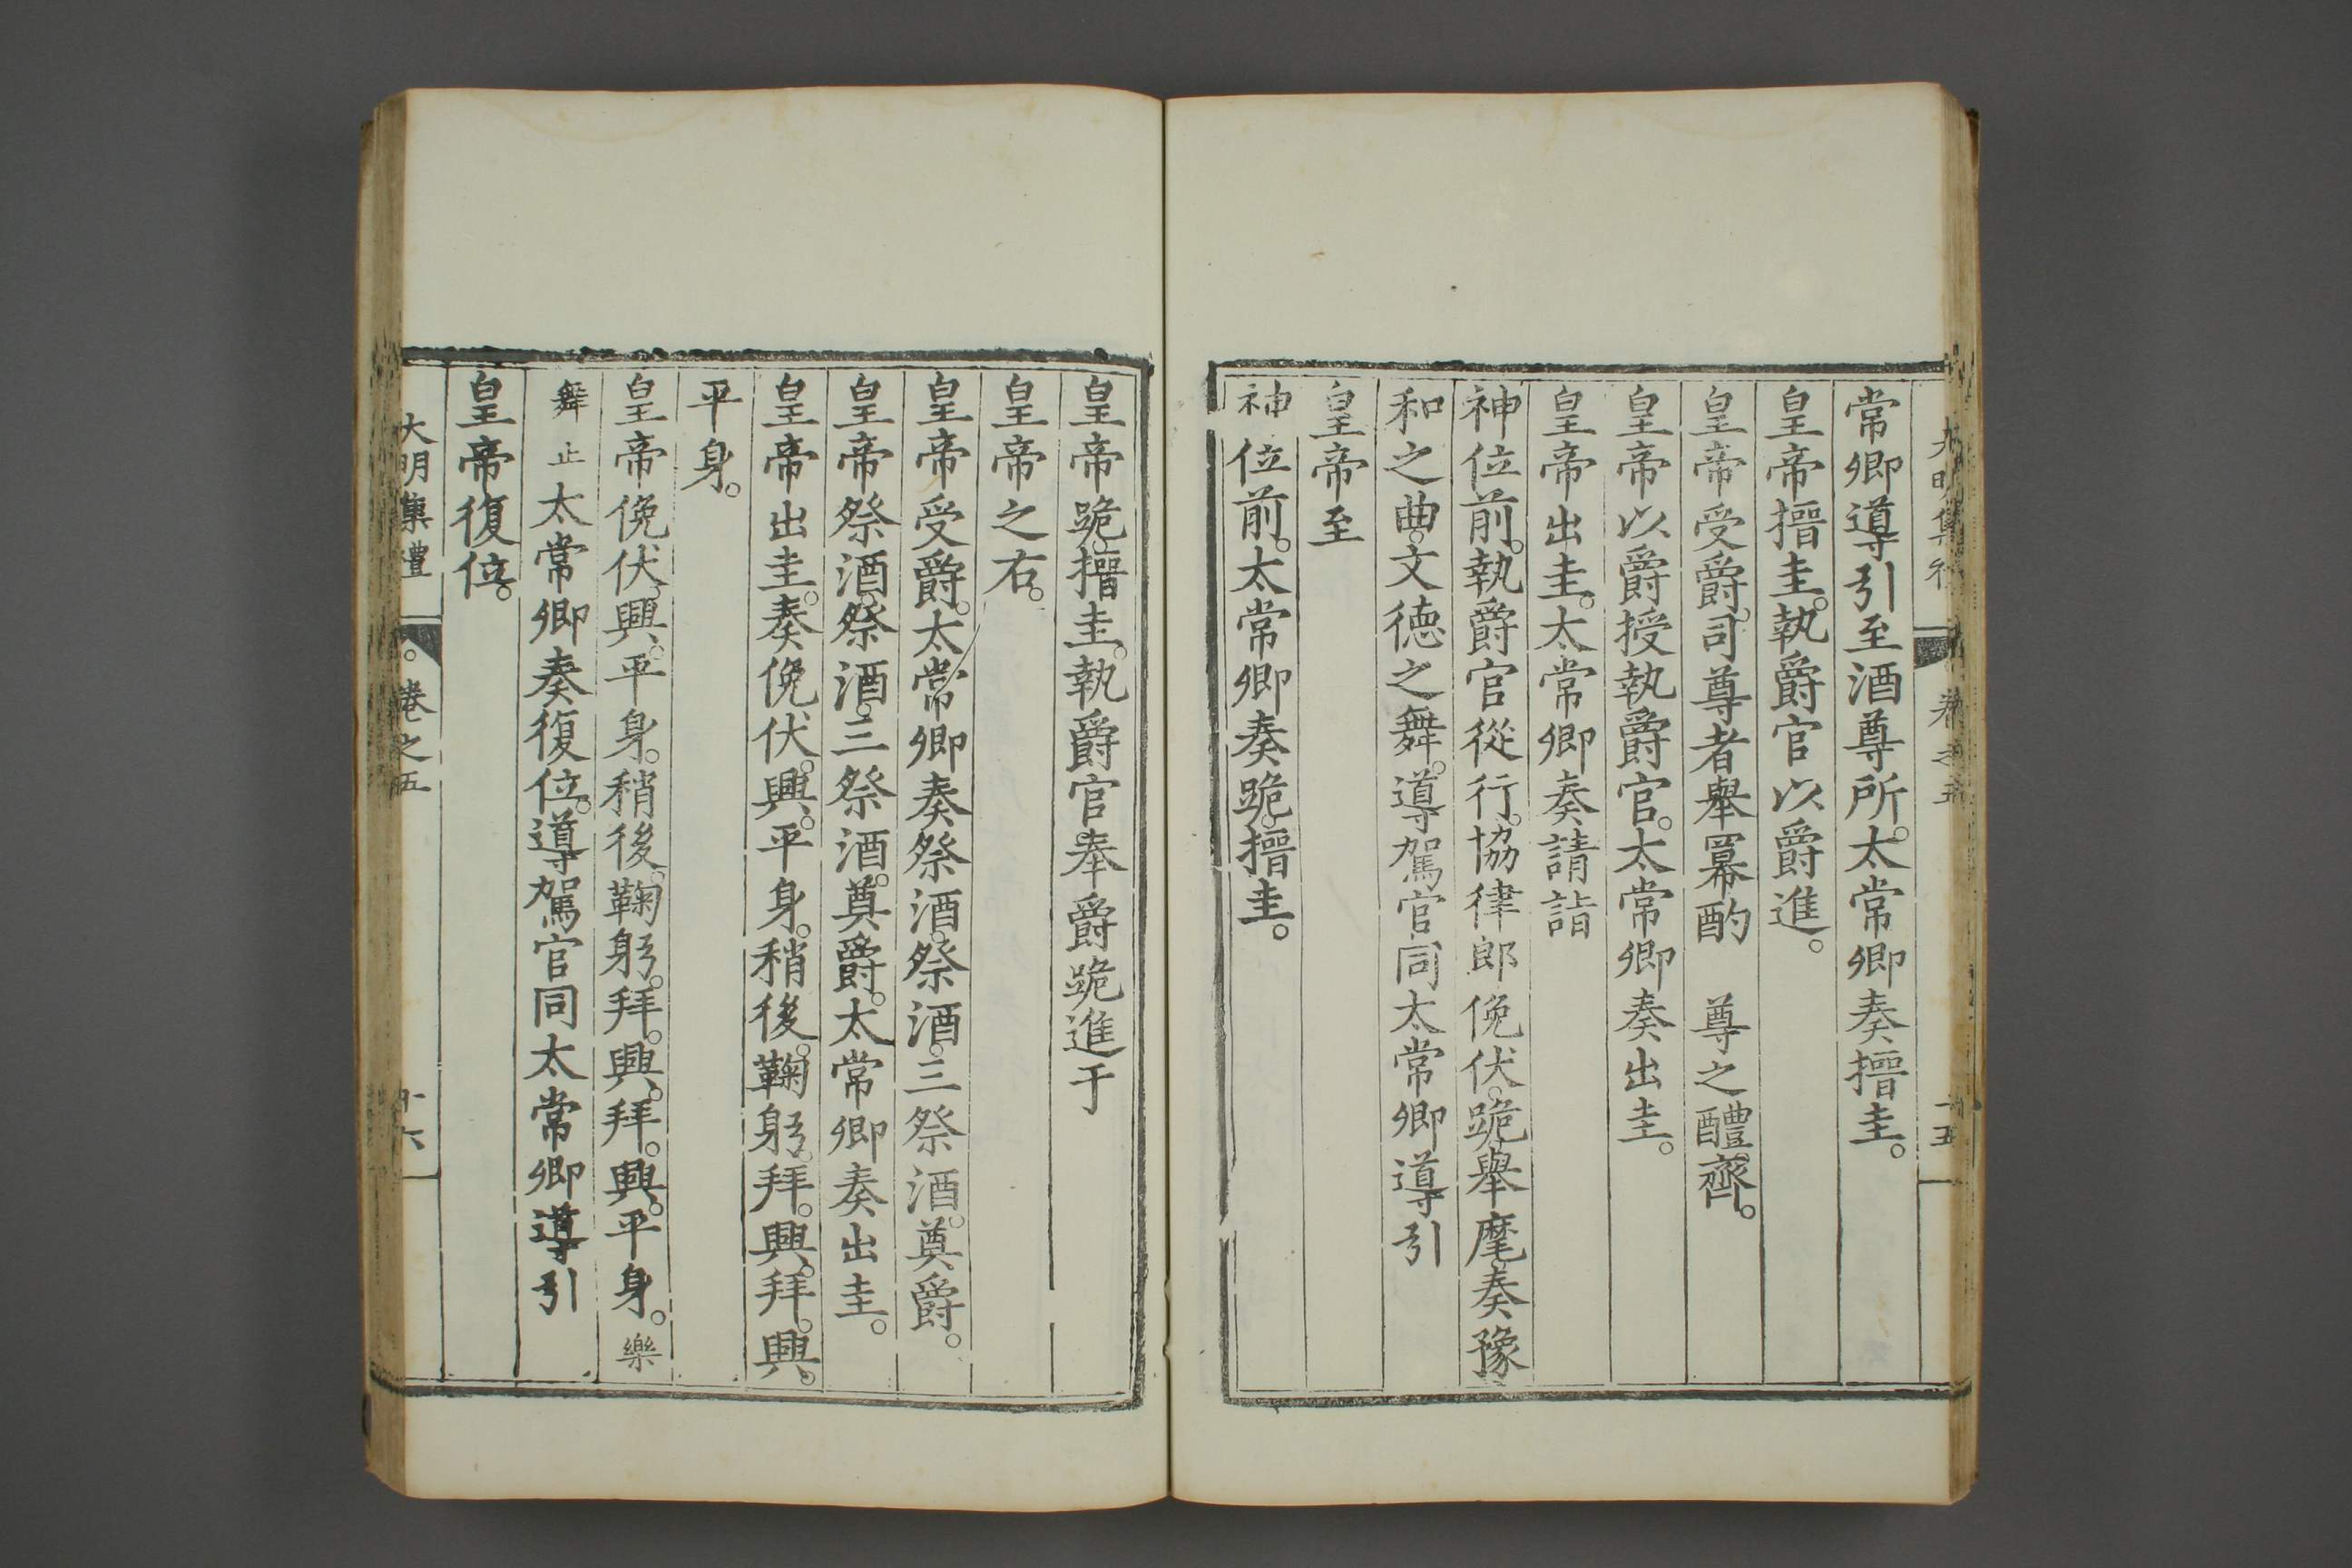 大明集禮 卷之五 十五
常卿導引至酒尊所。太常卿奏搢圭。
皇帝搢圭。執爵官以爵進。
皇帝受爵。司尊者舉羃酌 尊之醴齊。
皇帝以爵授執爵官。太常卿奏出圭。
皇帝出圭。太常卿奏請詣
神位前。執爵官從行。協律郎俛伏。跪。舉麾。奏豫
和之曲。文德之舞。導駕官同太常卿導引
皇帝至
神位前。太常卿奏跪。搢圭。
皇帝跪。搢圭。執爵官奉爵跪進于
皇帝之右。
皇帝受爵。太常卿奏祭酒。祭酒。三祭酒。奠爵。
皇帝祭酒。祭酒。三祭酒。奠爵。太常卿奏出圭。
皇帝出圭。奏俛伏。興。平身。稍後。鞠躬。拜。興。拜。興。
平身。
皇帝俛伏。興。平身。稍後。鞠躬。拜。興。拜。興。平身。樂
舞止太常卿奏復位。導駕官同太常卿導引
皇帝復位。
大明集禮 卷之五 十六